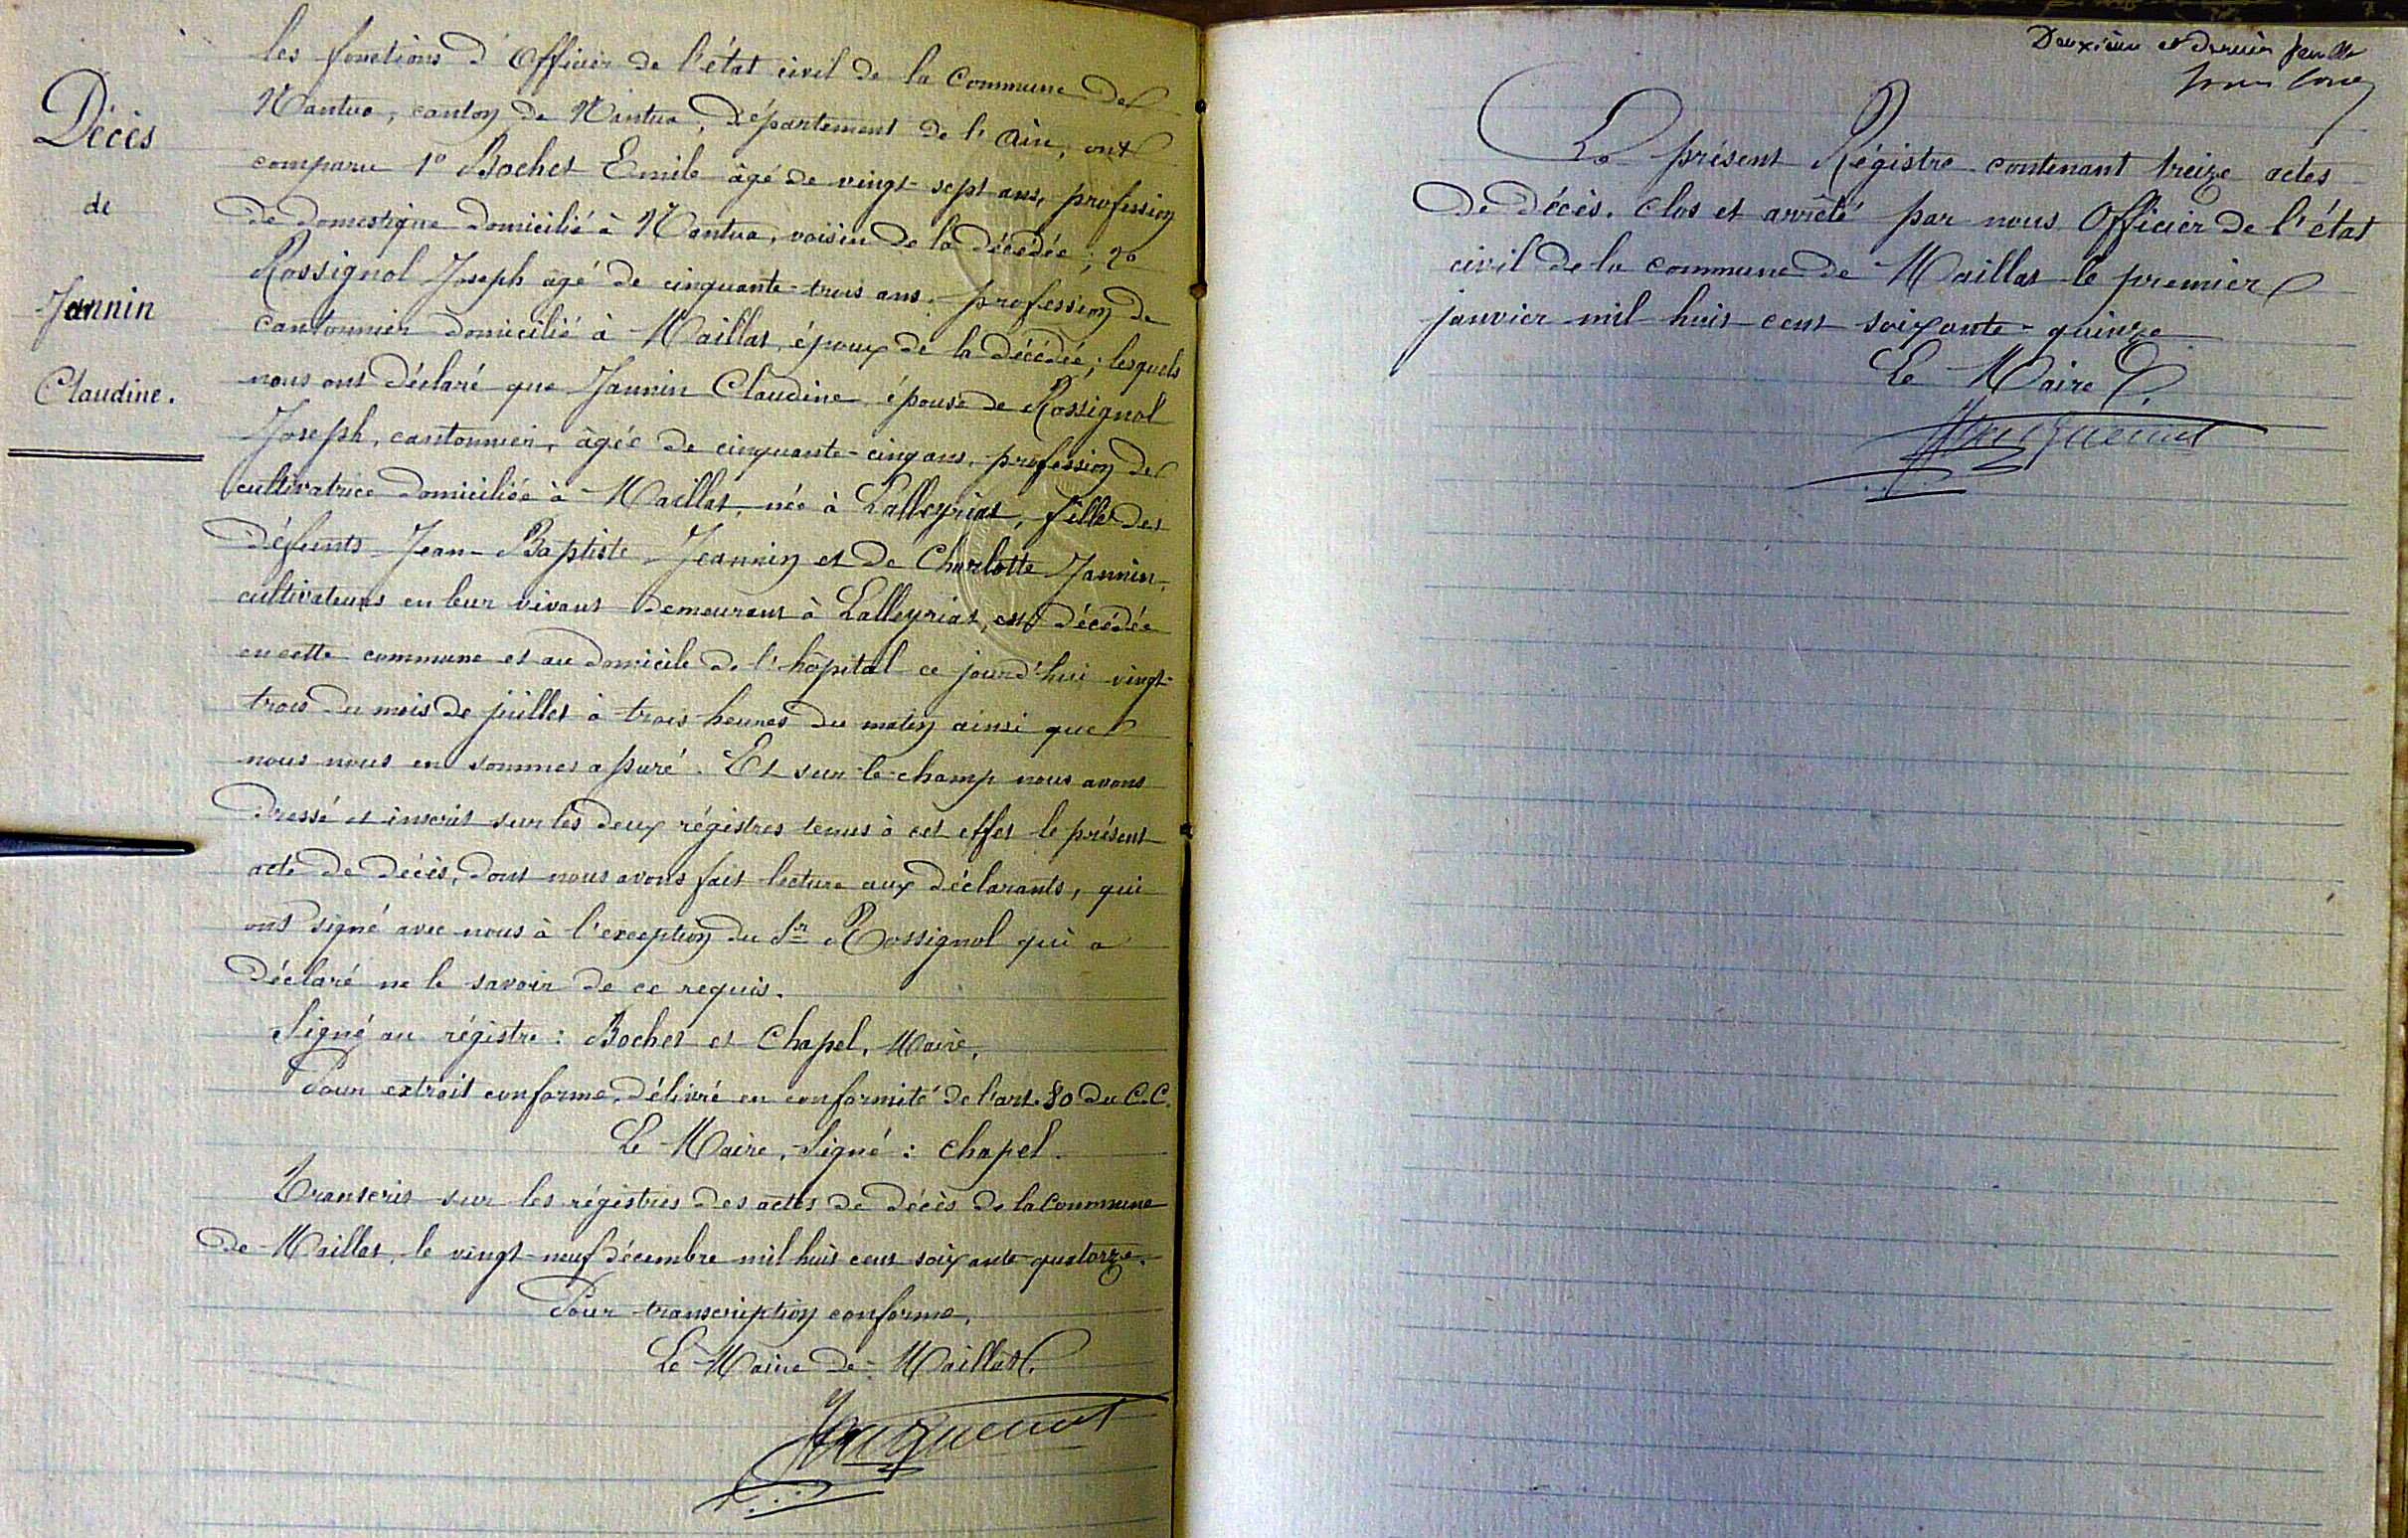 Décès
de
Jannin
Claudine.
les fonctions d'Officier de l'état civil de la Commune de
Nantua, canton de Nantua, département de l'Ain, ont
comparu 1° Bochet Emile âgé de vingt-sept ans, profession
de domestique domicilié à Nantua, voisin de la décédée; 2°
Rossignol Joseph âgé de cinquante-trois ans. profession de
cantonnier domicilié à Maillat, époux de la décédée; lesquels
nous ont déclaré que Jannin Claudine épouse de Rossignol
Joseph, cantonnier, âgée de cinquante-cinq ans, profession de
cultivatrice domiciliée à Maillat, née à Lalleyriat, fille des
défunts Jean-Baptiste Jeannin et de Charlotte Jannin,
cultivateurs en leur vivant demeurant à Lalleyriat, est décédée
en cette commune et au domicile de l'hôpital ce jourd'hui vingt-
trois du mois de juillet à trois heures du matin ainsi que
nous nous en sommes assuré. Et sur-le-champ nous avons
dressé et inscrit sur les deux régistres tenus à cet effet le présent
acte de décès, dont nous avons fait lecture aux déclarants, qui
ont signé avec nous à l'exception du Sr Rossignol qui a
déclaré ne le savoir de ce requis.
Signé au régistre : Bochet et Chapel, Maire,
Pour extrait conforme, délivré en conformité de l'art. 80 du C.C.
Le Maire, Signé : Chapel.
Transcris sur les régistres des actes de décès de la Commune
de Maillat, le vingt-neuf décembre mil huit cent soixante-quatorze.
Pour transcription conforme,
Le Maire de Maillat.
Deuxième et dernier feuillet
Le présent Régistre contenant treize actes
de décès. Clos et arrêté par nous Officier de l'état
civil de la commune de Maillat le premier
janvier mil huit cent soixante-quinze
Le Maire